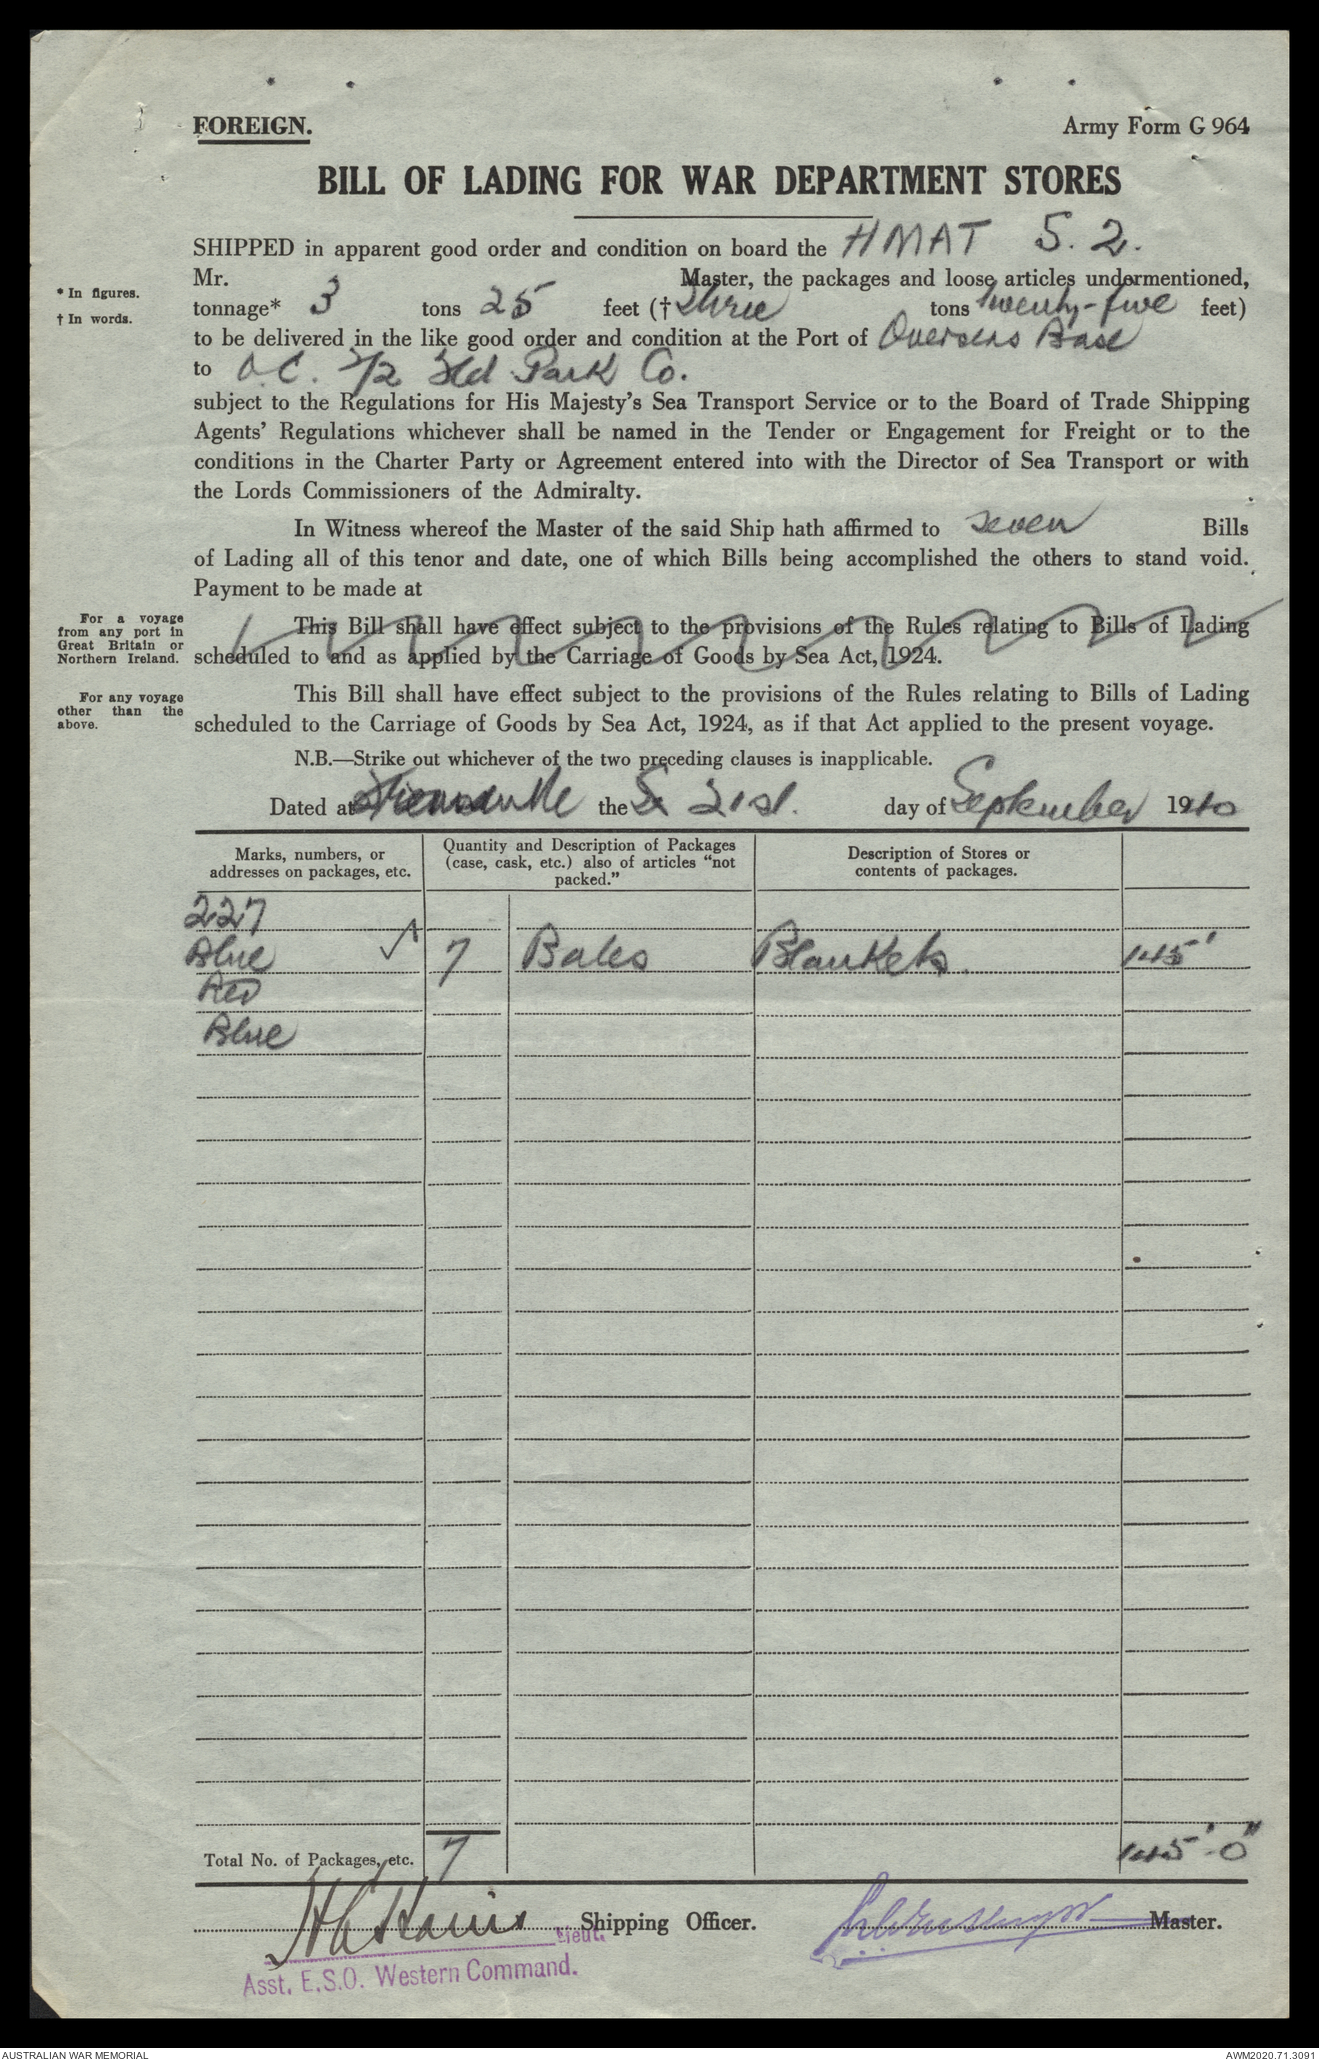 FOREIGN.
Army Form G 964
BILL OF LADING FOR WAR DEPARTMENT STORES
SHIPPED in apparent good order and condition on board the HMAT S. 2.
Mr. Master, the packages and loose articles undermentioned,
* In figures.
tonnage* 3 tons 25 feet († Three tons twenty-five feet)
† In words.
to be delivered in the like good order and condition at the Port of Overseas Base
to O.C. 2/2 Fld Park Co.
subject to the Regulations for His Majesty's Sea Transport Service or to the Board of Trade Shipping
Agents' Regulations whichever shall be named in the Tender or Engagement for Freight or to the
conditions in the Charter Party or Agreement entered into with the Director of Sea Transport or with
the Lords Commissioners of the Admiralty.
In Witness whereof the Master of the said Ship hath affirmed to seven Bills
of Lading all of this tenor and date, one of which Bills being accomplished the others to stand void.
Payment to be made at
For a voyage
from any port in
Great Britain or
Northern Ireland.
This Bill shall have effect subject to the provisions of the Rules relating to Bills of Lading
scheduled to and as applied by the Carriage of Goods by Sea Act, 1924.
For any voyage
other than the
above.
This Bill shall have effect subject to the provisions of the Rules relating to Bills of Lading
scheduled to the Carriage of Goods by Sea Act, 1924, as if that Act applied to the present voyage.
N.B.—Strike out whichever of the two preceding clauses is inapplicable.
Dated at Fremantle the 21st. day of September 1940
Marks, numbers, or
addresses on packages, etc.
Quantity and Description of Packages
(case, cask, etc.) also of articles "not
packed."
Description of Stores or
contents of packages.
227
Blue 7 Bales Blankets. 145'
Red
Blue
Total No. of Packages, etc. 7 145'-0"
Shipping Officer.
Master.
Lieut.
Asst. E.S.O. Western Command.
AUSTRALIAN WAR MEMORIAL
AWM2020.71.3091